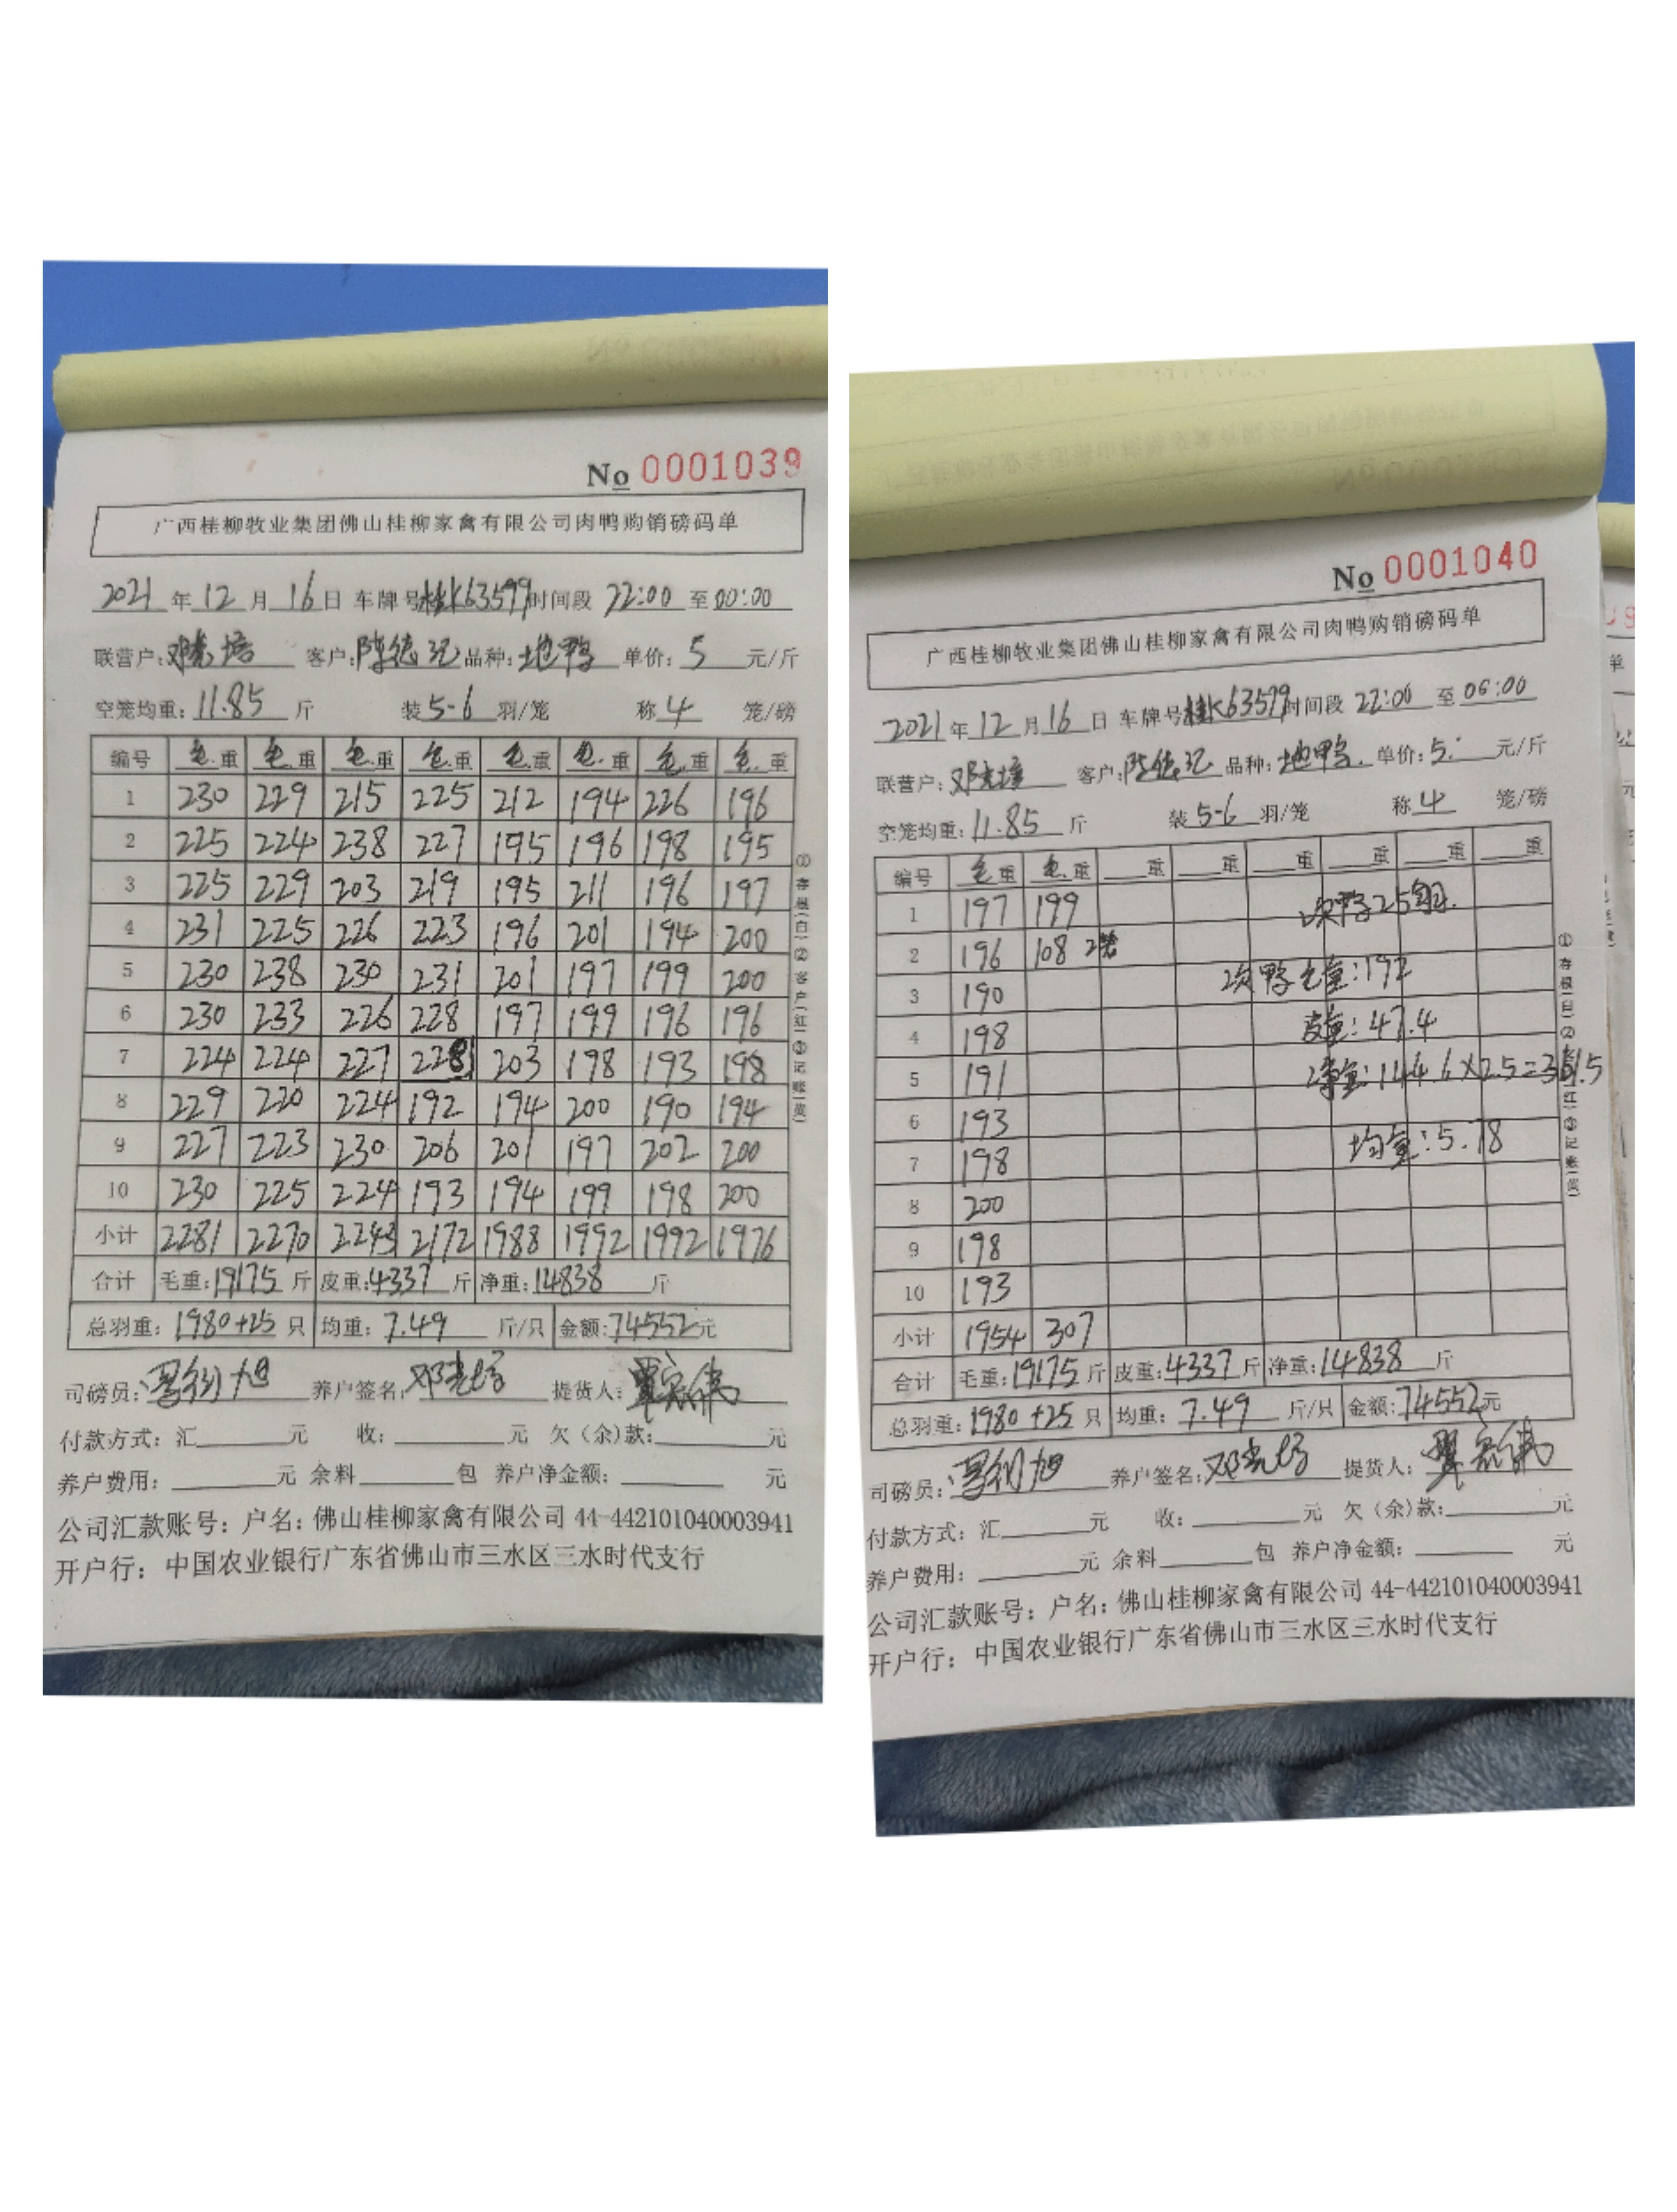 No 0001039
广西桂柳牧业集团佛山桂柳家禽有限公司肉鸭购销磅码单
2021 年 12 月 16 日 车牌号 桂K63599 时间段 22:00 至 00:00
联营户: 邓 培 客户: 陈德记 品种: 地鸭 单价: 5 元/斤
空笼均重: 11.85 斤 装 5-6 羽/笼 称 4 笼/磅
编号 毛重 毛重 毛重 毛重 毛重 毛重 毛重 毛重
1 230 229 215 225 212 194 226 196
2 225 224 238 227 195 196 198 195
3 225 229 203 219 195 211 196 197
4 231 225 226 223 196 201 194 200
5 230 238 230 231 201 197 199 200
6 230 233 226 228 197 199 196 196
7 224 224 227 228 203 198 193 198
8 229 220 224 192 194 200 190 194
9 227 223 230 206 201 197 202 200
10 230 225 224 193 194 199 198 200
小计 2281 2270 2243 2172 1988 1992 1992 1976
合计 毛重: 19175 斤 皮重: 4337 斤 净重: 14838 斤
总羽重: 1980+25 只 均重: 7.49 斤/只 金额: 74552元
司磅员: 旭 养户签名: 邓 培 提货人: 覃 伟
付款方式: 汇 元 收: 元 欠(余)款: 元
养户费用: 元 余料 包 养户净金额: 元
公司汇款账号: 户名: 佛山桂柳家禽有限公司 44-442101040003941
开户行: 中国农业银行广东省佛山市三水区三水时代支行
①存根(白) ②客户(红) ③记账(黄)
No 0001040
广西桂柳牧业集团佛山桂柳家禽有限公司肉鸭购销磅码单
2021 年 12 月 16 日 车牌号 桂K63599 时间段 22:00 至 00:00
联营户: 邓 培 客户: 陈德记 品种: 地鸭 单价: 5 元/斤
空笼均重: 11.85 斤 装 5-6 羽/笼 称 4 笼/磅
编号 毛重 毛重 重 重 重 重 重 重
1 197 199 次鸭25羽
2 196 108 2笼
3 190 次鸭毛重: 192
4 198 皮重: 47.4
5 191 净重: 144.6×2.5=361.5
6 193
7 198 均重: 5.78
8 200
9 198
10 193
小计 1954 307
合计 毛重: 19175 斤 皮重: 4337 斤 净重: 14838 斤
总羽重: 1980+25 只 均重: 7.49 斤/只 金额: 74552元
司磅员: 旭 养户签名: 邓 培 提货人: 覃 伟
付款方式: 汇 元 收: 元 欠(余)款: 元
养户费用: 元 余料 包 养户净金额: 元
公司汇款账号: 户名: 佛山桂柳家禽有限公司 44-442101040003941
开户行: 中国农业银行广东省佛山市三水区三水时代支行